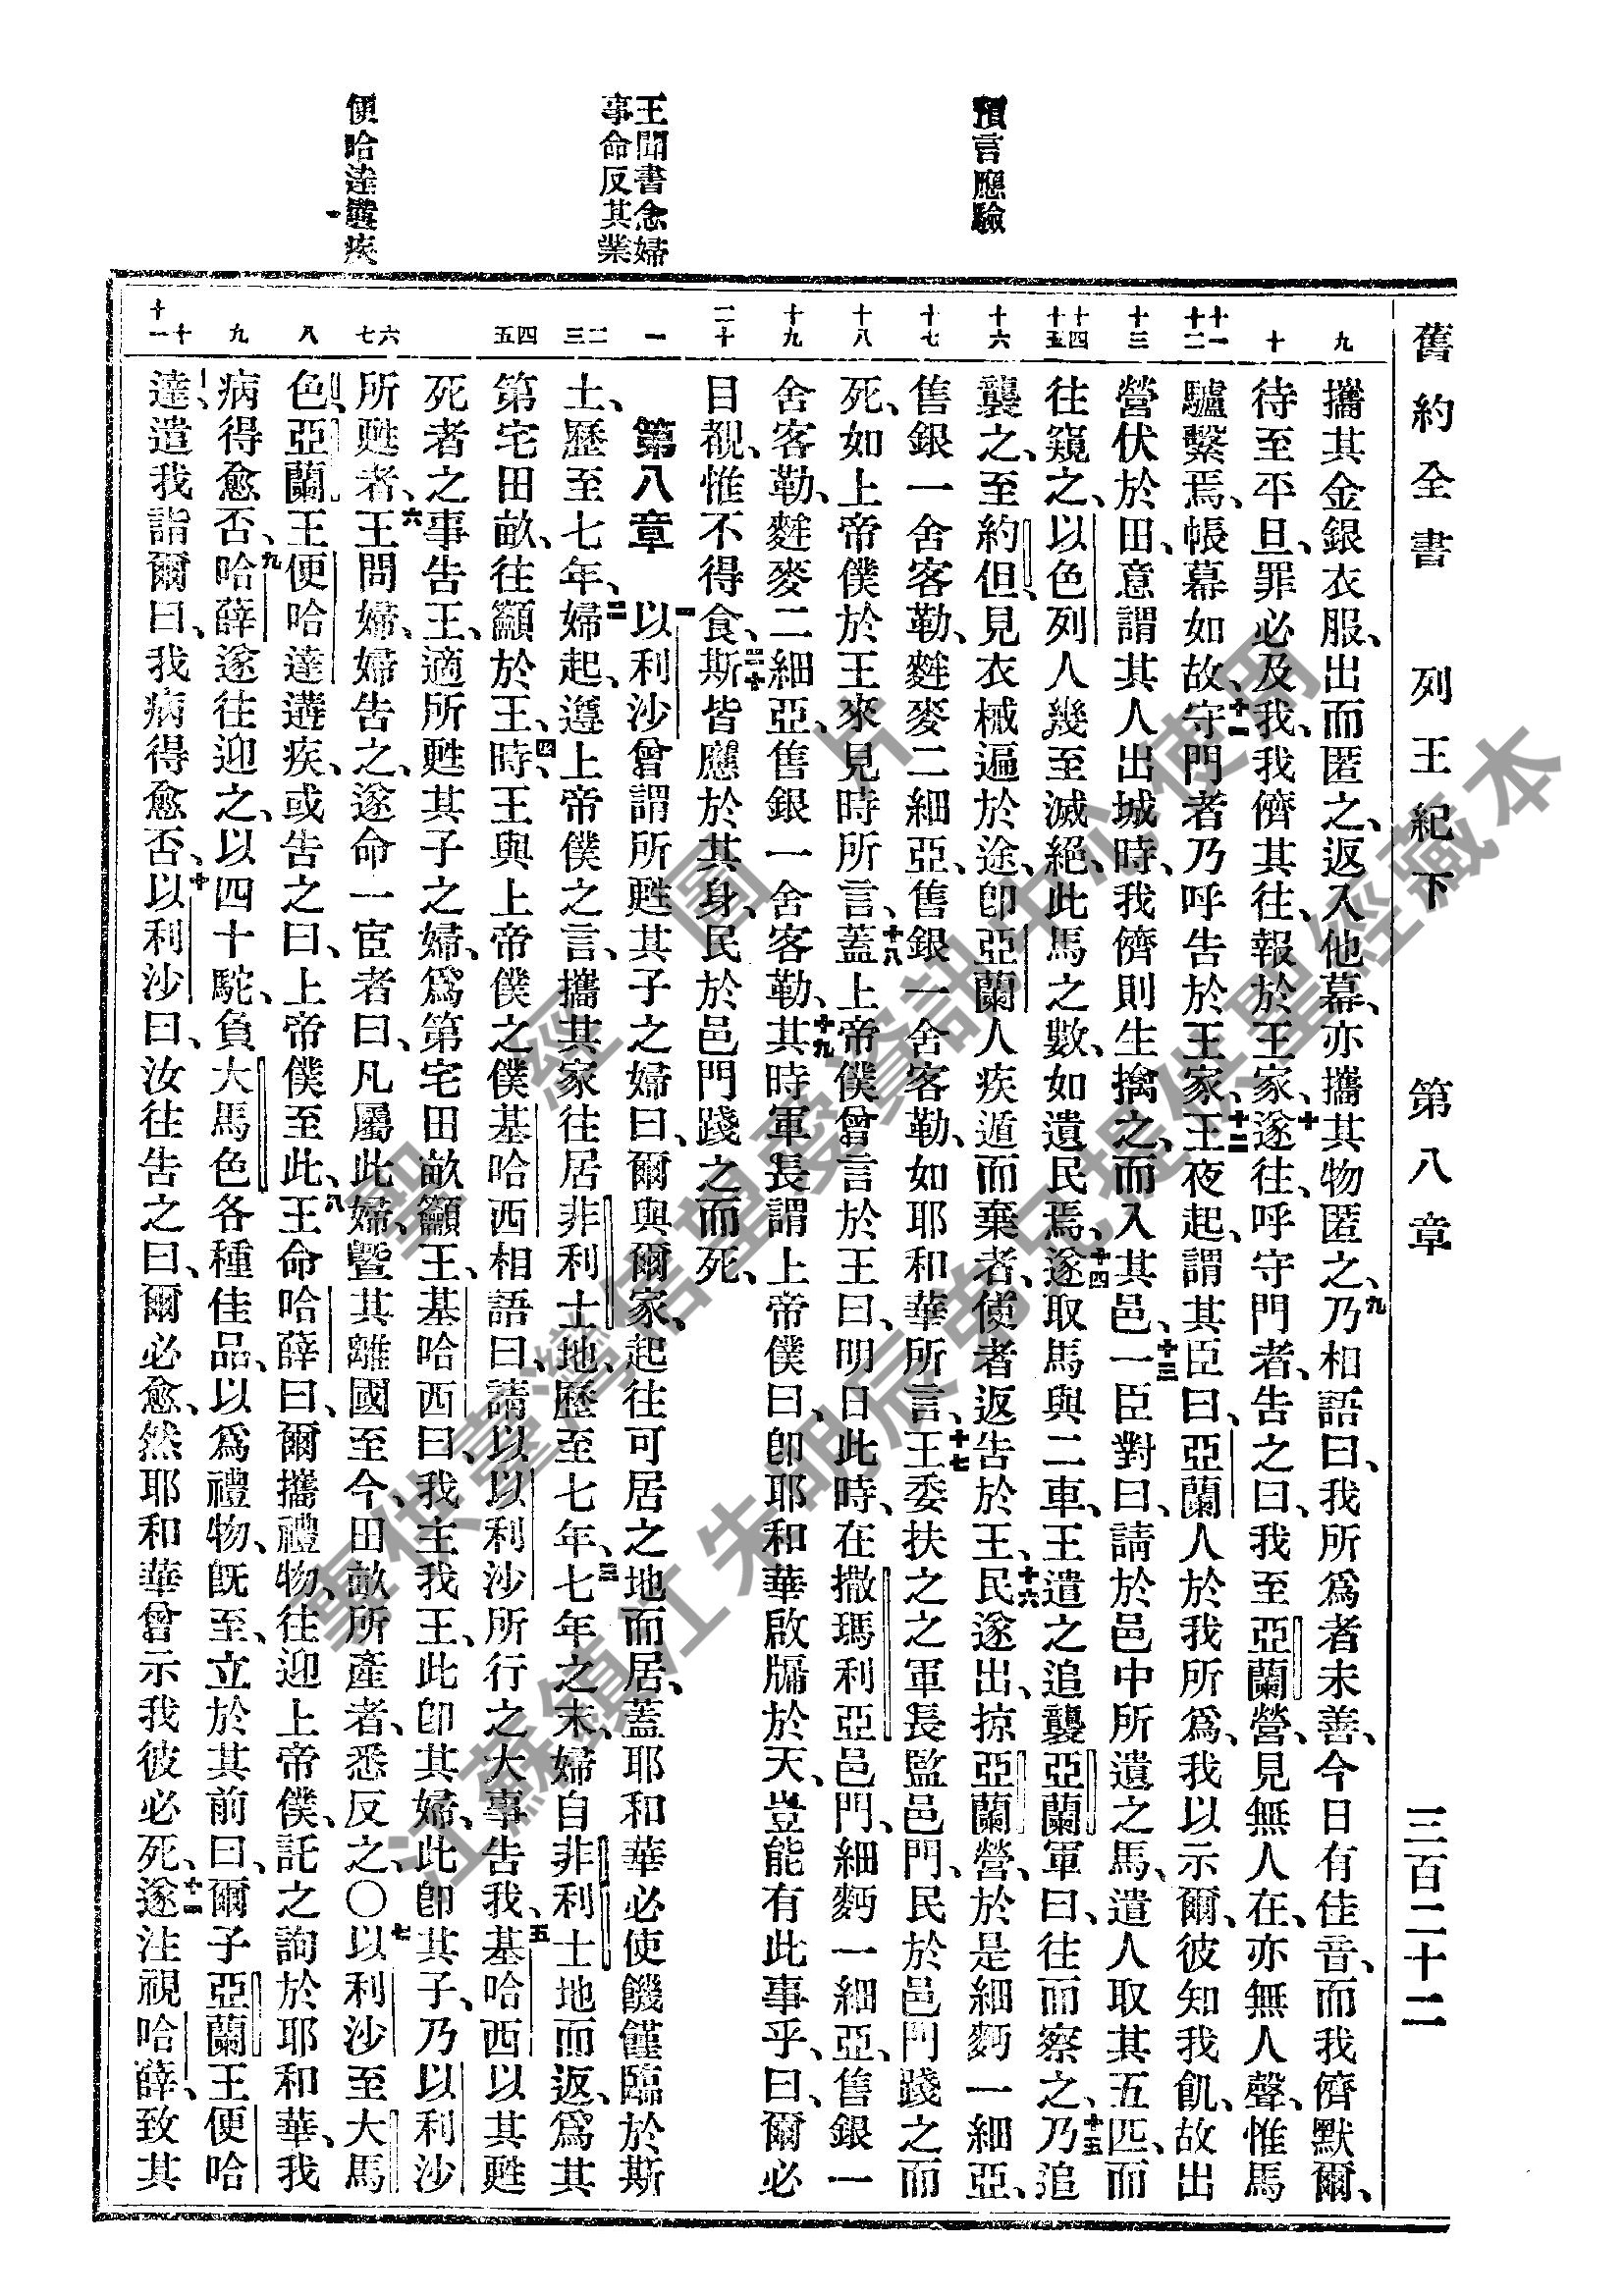 舊約全書　列王紀下　第八章　三百二十二
預言應驗
王聞書念婦
事命反其業
便哈達遘疾
九
十
十一
十二
十三
十四
十五
十六
十七
十八
十九
二十
一
二
三
四
五
六
七
八
九
十
十一
攜其金銀衣服、出而匿之、返入他幕、亦攜其物匿之、九乃相語曰、我所爲者未善、今日有佳音、而我儕默爾、
待至平旦、罪必及我、我儕其往、報於王家、十遂往、呼守門者、告之曰、我至亞蘭營、見無人在、亦無人聲、惟馬
驢繫焉、帳幕如故、十一守門者乃呼告於王家、十二王夜起、謂其臣曰、亞蘭人於我所爲、我以示爾、彼知我飢、故出
營伏於田、意謂其人出城時、我儕則生擒之、而入其邑、十三一臣對曰、請於邑中所遺之馬、遣人取其五匹、而
往窺之、以色列人幾至滅絕、此馬之數、如遺民焉、十四遂取馬與二車、王遣之追襲亞蘭軍曰、往而察之、十五乃追
襲之、至約但、見衣械遍於途、卽亞蘭人疾遁而棄者、使者返告於王、十六民遂出、掠亞蘭營、於是細麪一細亞、
售銀一舍客勒、麰麥二細亞、售銀一舍客勒、如耶和華所言、十七王委扶之之軍長監邑門、民於邑門踐之而
死、如上帝僕於王來見時所言、十八蓋上帝僕曾言於王曰、明日此時、在撒瑪利亞邑門、細麪一細亞、售銀一
舍客勒、麰麥二細亞、售銀一舍客勒、十九其時軍長謂上帝僕曰、卽耶和華啟牖於天、豈能有此事乎、曰、爾必
目覩、惟不得食、二十斯皆應於其身、民於邑門踐之而死、
第八章　一以利沙曾謂所甦其子之婦曰、爾與爾家、起往可居之地而居、蓋耶和華必使饑饉臨於斯
土、歷至七年、二婦起、遵上帝僕之言、攜其家往居非利士地、歷至七年、三七年之末、婦自非利士地而返、爲其
第宅田畝、往籲於王、四時、王與上帝僕之僕基哈西相語曰、請以以利沙所行之大事告我、五基哈西以其甦
死者之事告王、適所甦其子之婦、爲第宅田畝籲王、基哈西曰、我主我王、此卽其婦、此卽其子、乃以利沙
所甦者、六王問婦、婦告之、遂命一宦者曰、凡屬此婦、曁其離國至今、田畝所產者、悉反之、〇七以利沙至大馬
色、亞蘭王便哈達遘疾、或告之曰、上帝僕至此、八王命哈薛曰、爾攜禮物、往迎上帝僕、託之詢於耶和華、我
病得愈否、九哈薛遂往迎之、以四十駝、負大馬色各種佳品、以爲禮物、旣至、立於其前曰、爾子亞蘭王便哈
達、遣我詣爾曰、我病得愈否、十以利沙曰、汝往告之曰、爾必愈、然耶和華曾示我彼必死、十一遂注視哈薛、致其
聖經圖片
專供臺灣信望愛資訊中心使用
江蘇鎮江朱明辰弟兄提供聖經藏本